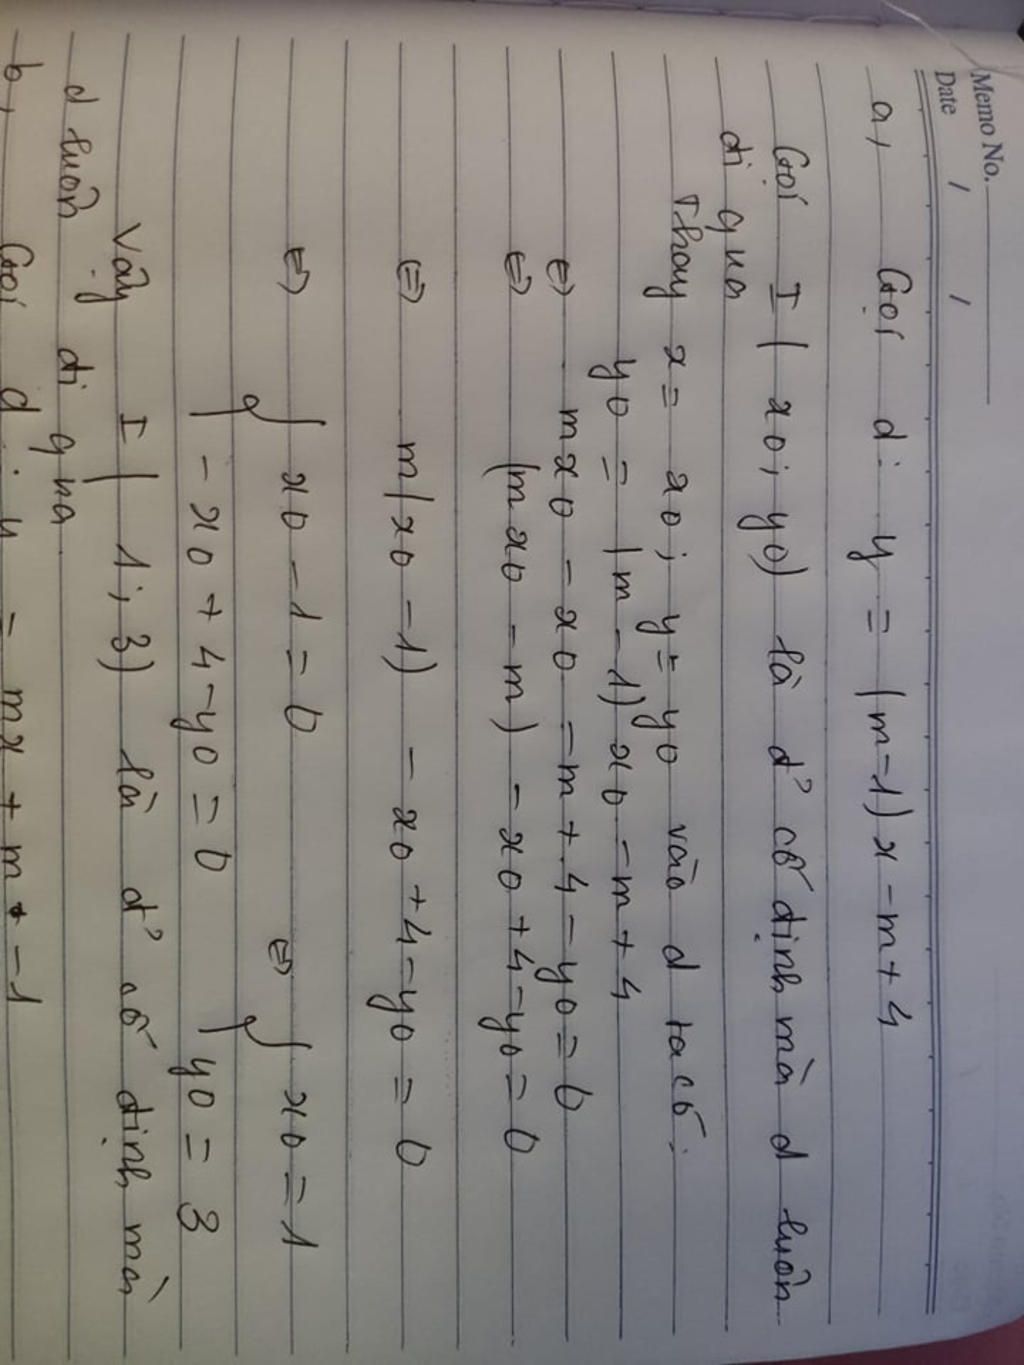 Memo No.
Date / /
a, Gọi d: y = (m-1)x - m + 4
Gọi I( xo; yo) là đ' cố định mà d luôn
đi qua
Thay x = xo; y = yo vào d ta có:
yo = (m - 1) xo - m + 4
⇔ mxo - xo - m + 4 - yo = 0
⇔ (mxo - m) - xo + 4 - yo = 0
⇔ m(xo - 1) - xo + 4 - yo = 0
⇔ { xo - 1 = 0 ⇔ { xo = 1
- xo + 4 - yo = 0 yo = 3
Vậy I( 1; 3) là đ' cố định mà
d luôn đi qua
b, Gọi d: y = mx + m - 1